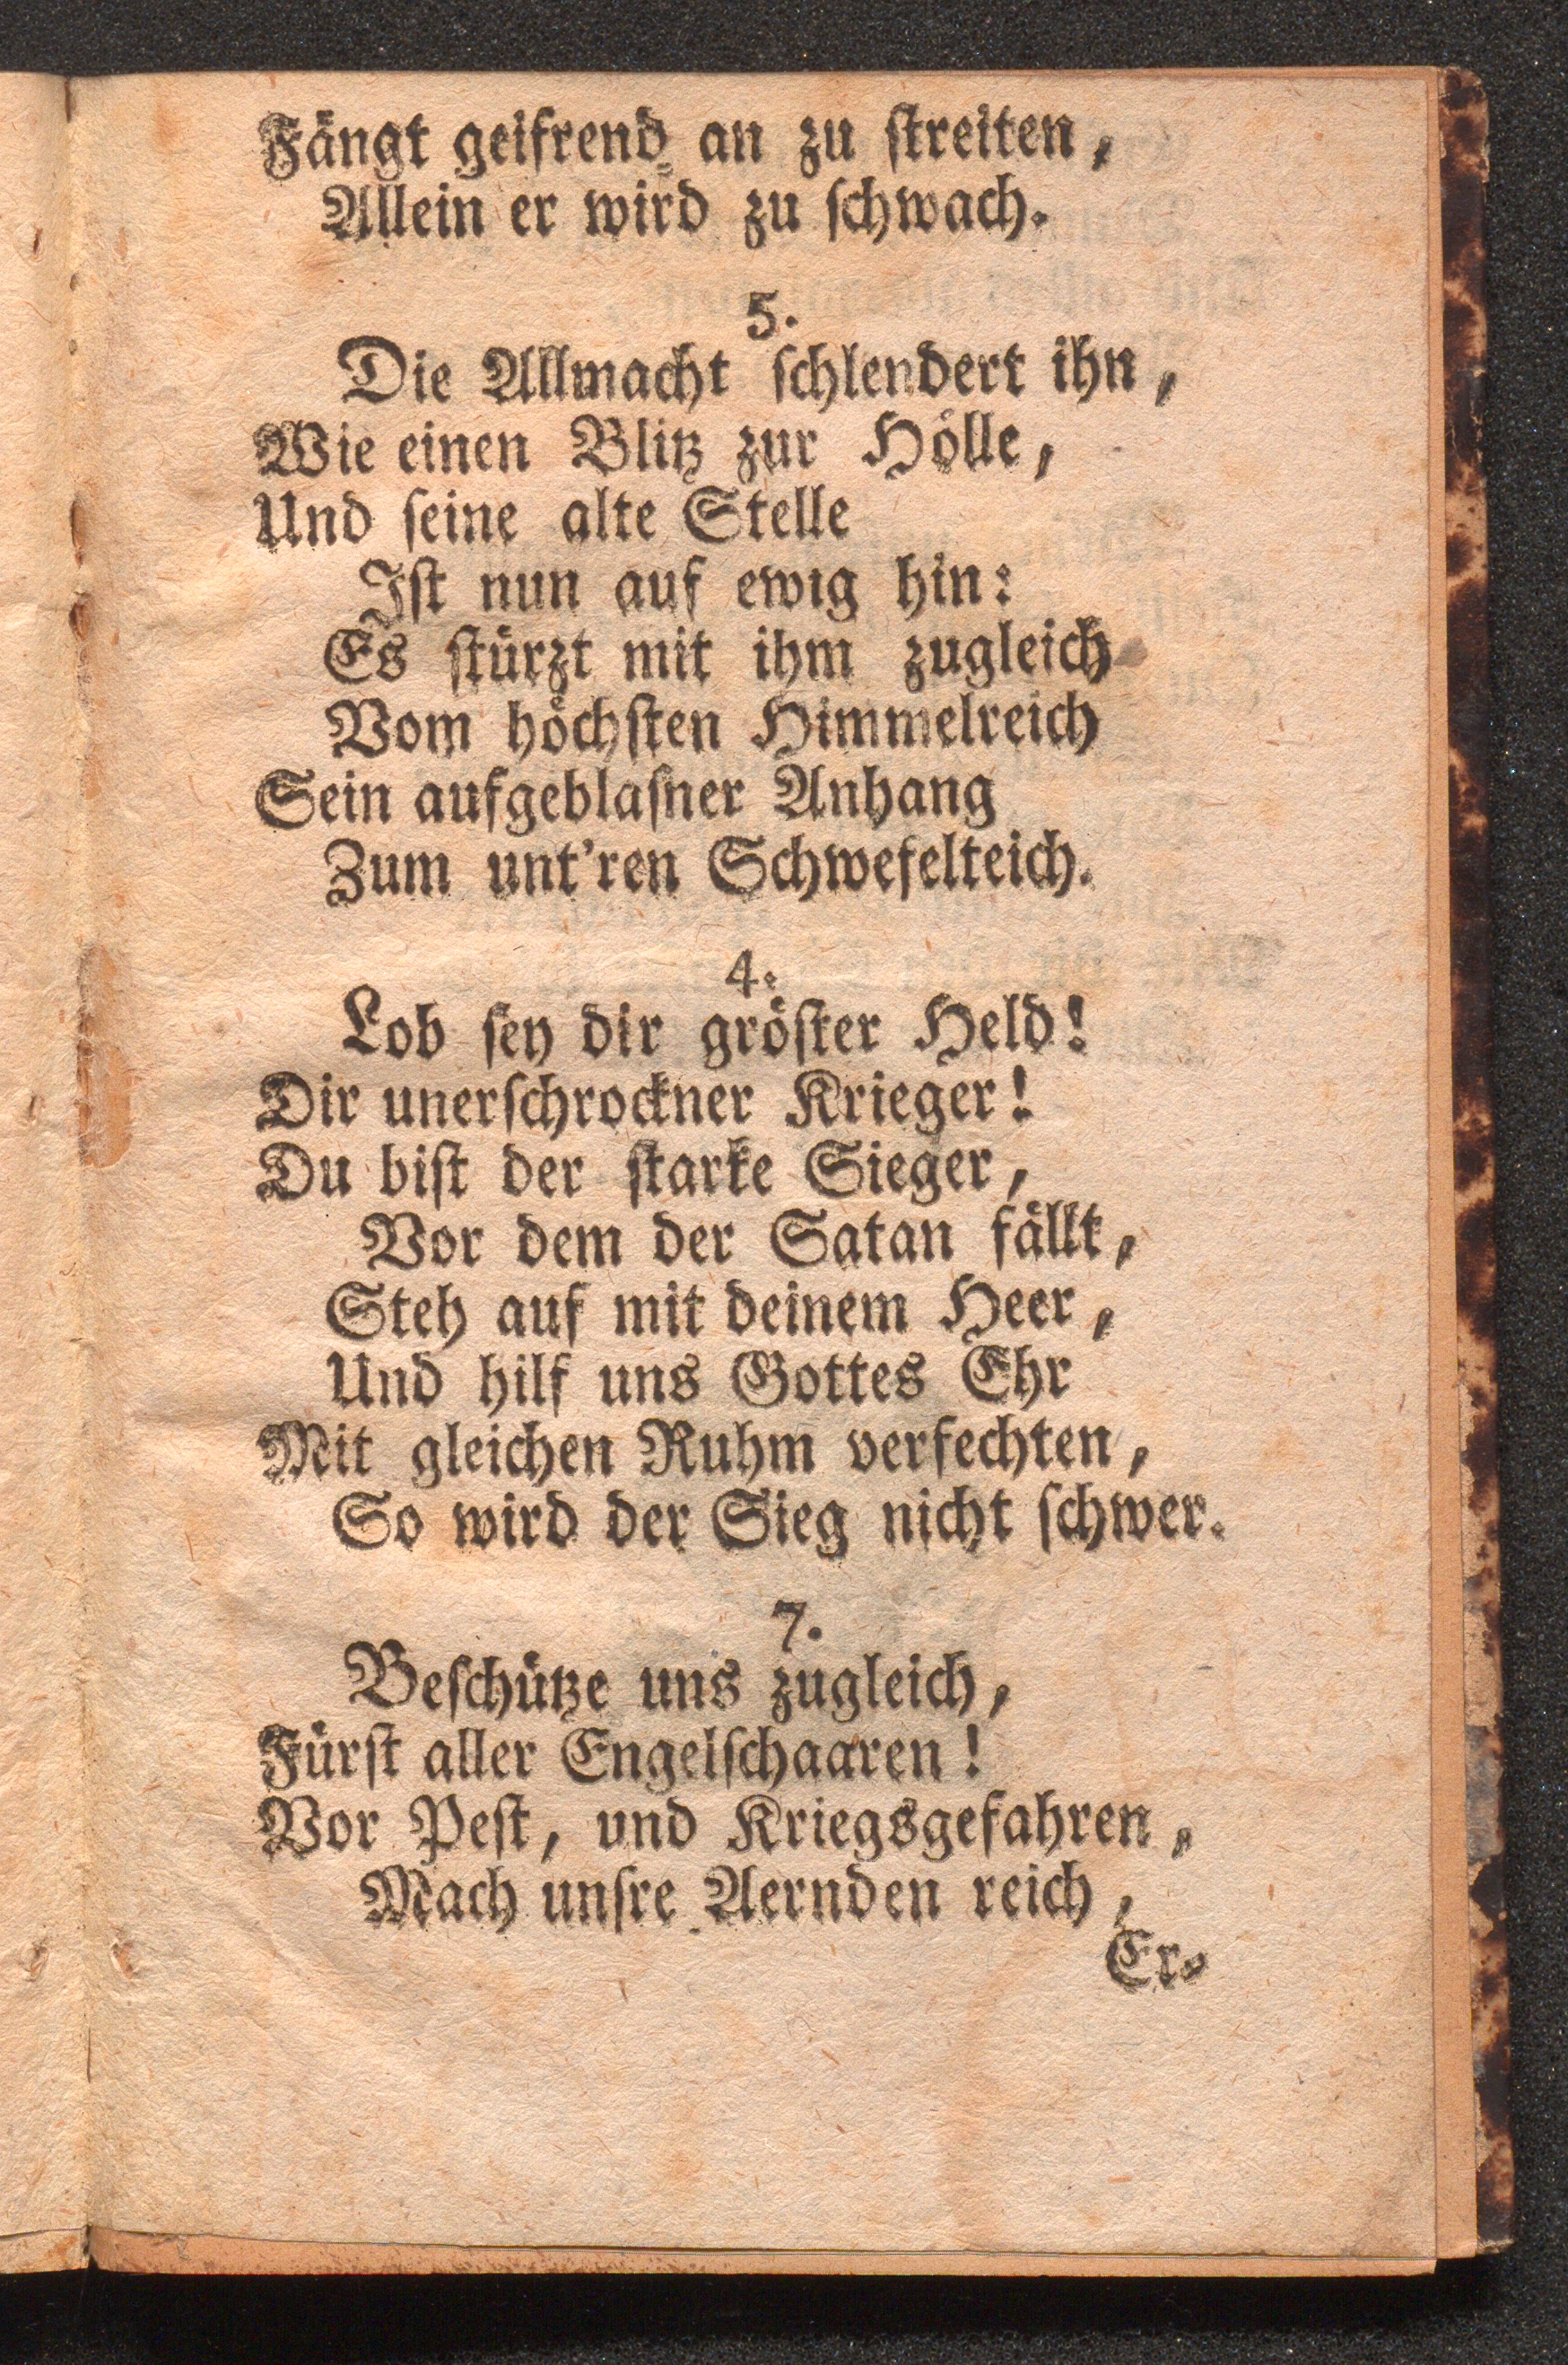 Fängt geifrend an zu ſtreiten,
Allein er wird zu ſchwach.
5.
Die Allmacht ſchlendert ihn,
Wie einen Blitz zur Hölle,
Und ſeine alte Stelle
Iſt nun auf ewig hin:
Es ſtürzt mit ihm zugleich
Vom höchſten Himmelreich
Sein aufgeblaſner Anhang
Zum unt'ren Schwefelteich.
4.
Lob ſey dir gröſter Held!
Dir unerſchrockner Krieger!
Du biſt der ſtarke Sieger,
Vor dem der Satan fällt,
Steh auf mit deinem Heer,
Und hilf uns Gottes Ehr
Mit gleichen Ruhm verfechten,
So wird der Sieg nicht ſchwer.
7.
Beſchütze uns zugleich,
Fürſt aller Engelſchaaren!
Vor Peſt, und Kriegsgefahren,
Mach unſre Aernden reich,
Er-